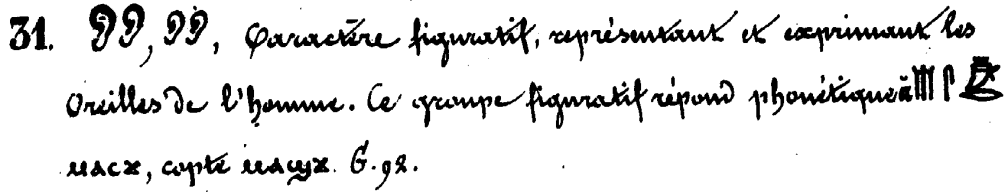 31. 𓄔𓄔, 𓄔𓄔, Caractère figuratif, représentant et exprimant les
Oreilles de l'homme. Ce groupe figuratif répond phonétique à
ⲙⲁⲥϫ, copte ⲙⲁϣϫ. G. 92.